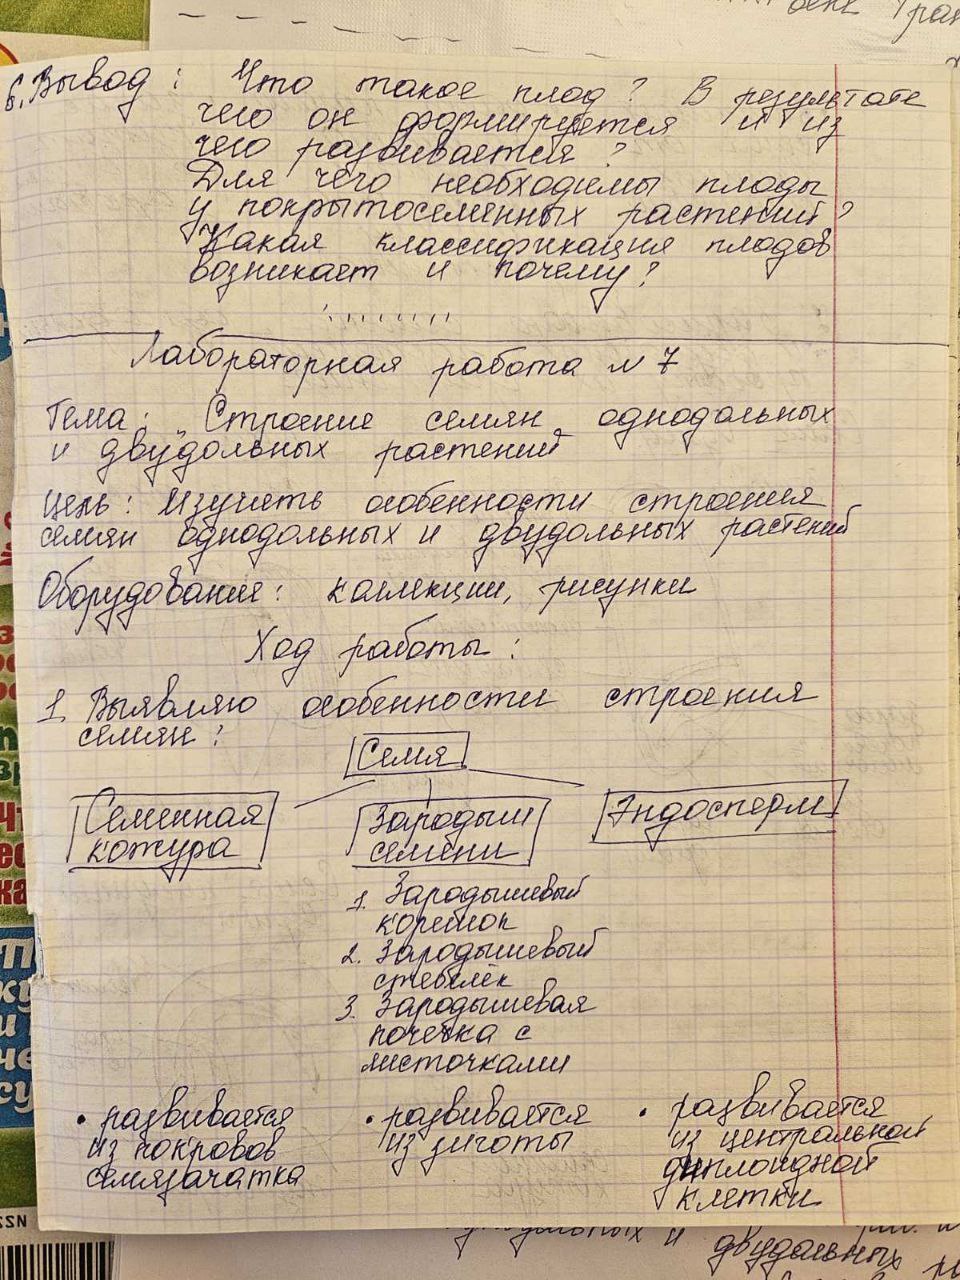 6. Вывод: Что такое плод? В результате
чего он формируется и из
чего развивается?
Для чего необходимы плоды
у покрытосеменных растений?
Какая классификация плодов
возникает и почему?
Лабораторная работа №7
Тема: „Строение семян однодольных
и двудольных растений“
Цель: Изучить особенности строения
семян однодольных и двудольных растений
Оборудование: коллекции, рисунки
Ход работы:
1. Выявляю особенности строения
семян:
Семя
Семенная
кожура
Зародыш
семени
Эндосперм
1. Зародышевый
корешок
2. Зародышевый
стебелёк
3. Зародышевая
почечка с
листочками
• развивается
из покровов
семязачатка
• развивается
из зиготы
• развивается
из центральной
диплоидной
клетки
и двудольных